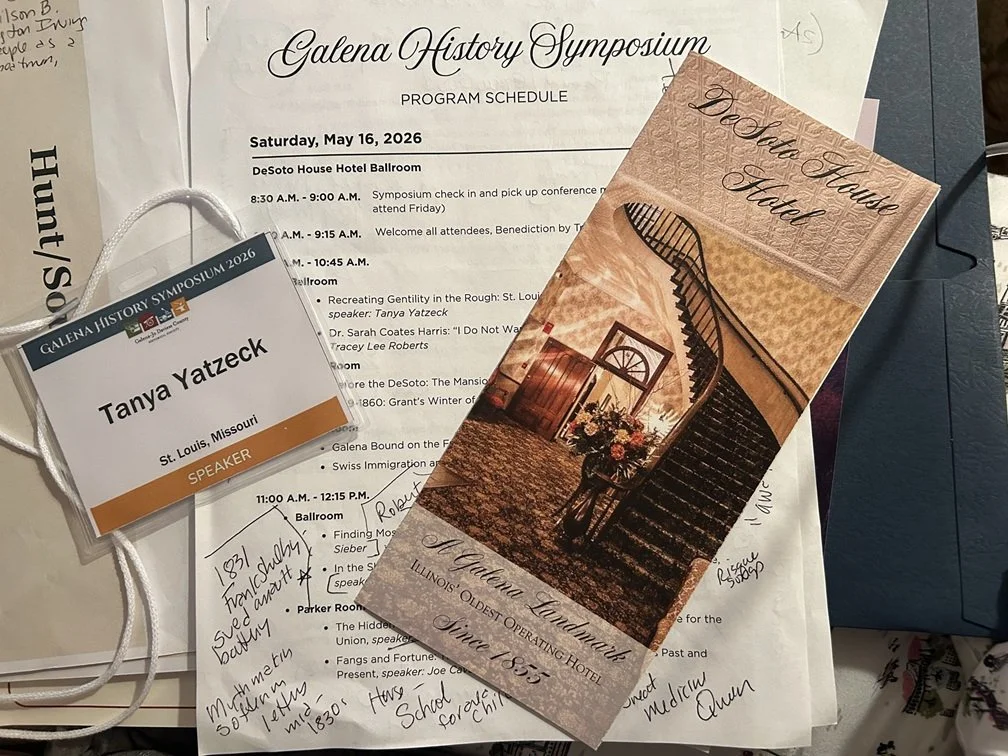 ilson B.
Hunt/So
Galena History Symposium
PROGRAM SCHEDULE
Saturday, May 16, 2026
DeSoto House Hotel Ballroom
8:30 A.M. - 9:00 A.M. Symposium check in and pick up conference
attend Friday)
A.M. - 9:15 A.M. Welcome all attendees, Benediction by
A.M. - 10:45 A.M.
Ballroom
• Recreating Gentility in the Rough: St.
speaker: Tanya Yatzeck
• Dr. Sarah Coates Harris: "I Do Not
Tracey Lee Roberts
Room
ore the DeSoto: The
-1860: Grant's Winter of
• Galena Bound on the
• Swiss Immigration
11:00 A.M. - 12:15 P.M.
• Ballroom
• Finding
Sieber
• In the
speak
• Parker Room
• The Hidden
Union, speaker
e for the
• Fangs and Fortune:
Past and
Present, speaker: Joe
GALENA HISTORY SYMPOSIUM 2026
Galena-Jo Daviess County
Tanya Yatzeck
St. Louis, Missouri
SPEAKER
DeSoto House
Hotel
A Galena Landmark
ILLINOIS' OLDEST OPERATING HOTEL
Since 1855
Robert
1831
Frank Shelby
sued assault
battery
letters
mid-
1830s
School
for
Risque
songs
medicine
Queen